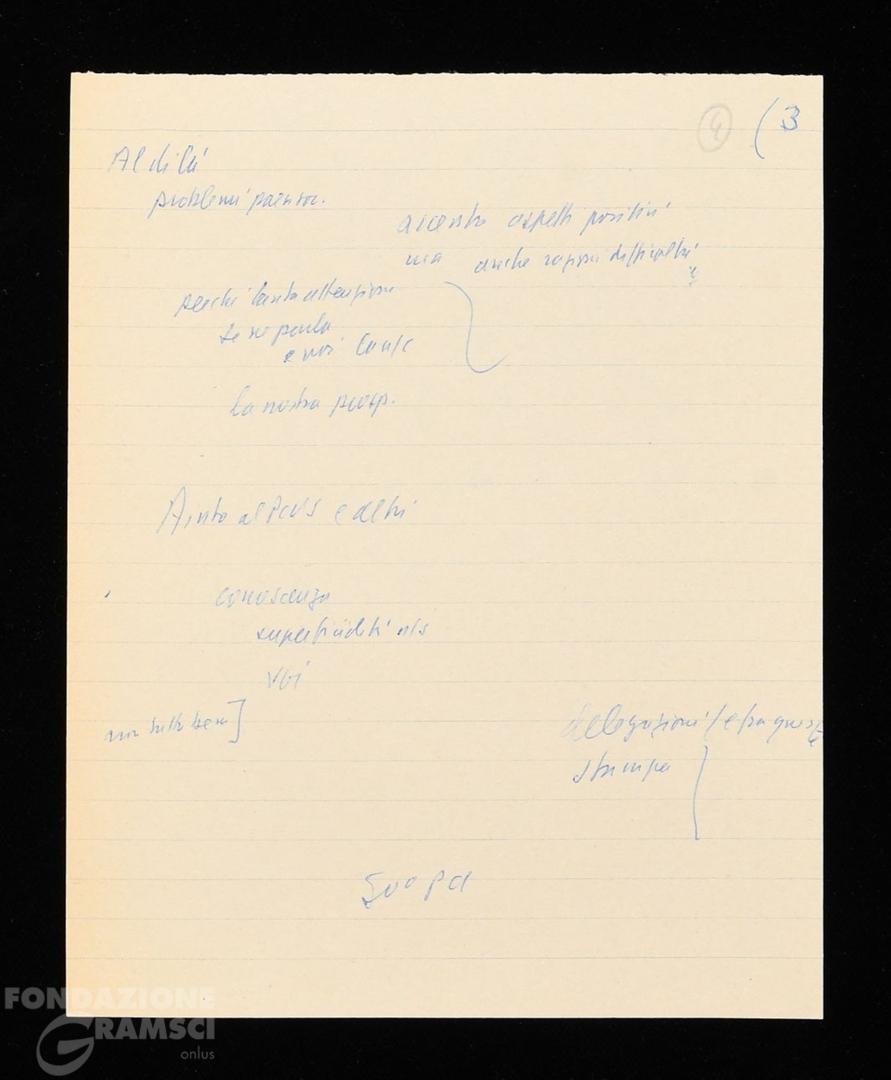 4 (3
Al di là
problemi
accento aspetti positivi
ma anche ragioni difficoltà
perché tanta attenzione
se ne parla
e noi
la nostra prosp.
Aiuto al PCUS e altri
conoscenza
superficialità
voi
non tutto bene]
delegazioni
stampa
Europa
FONDAZIONE
GRAMSCI
onlus